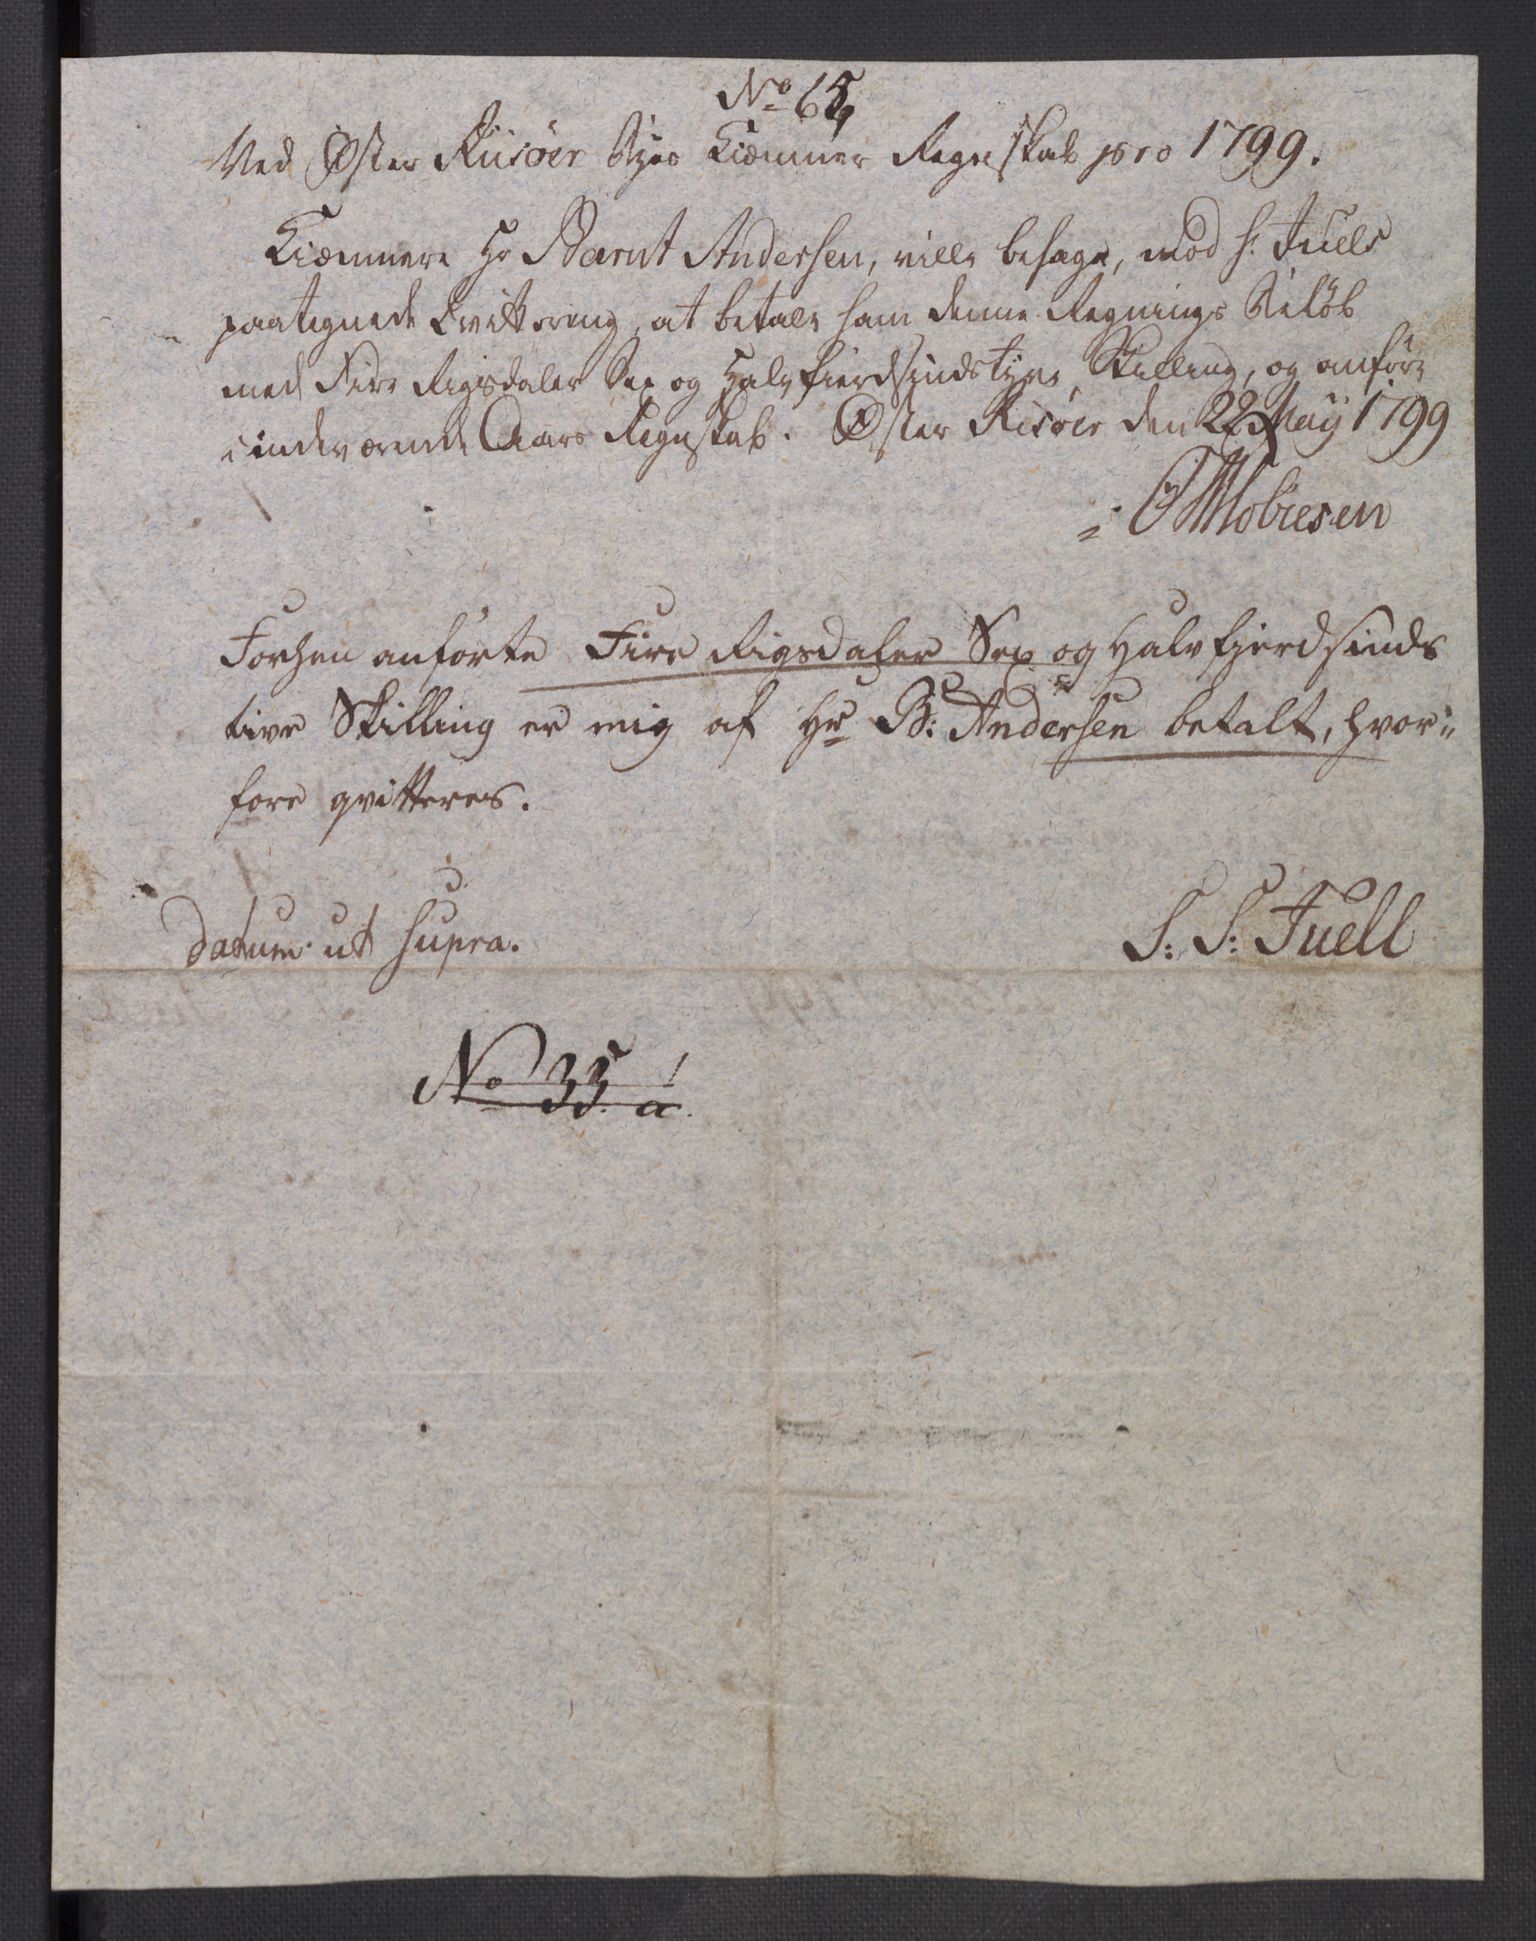 No 65
Ved Øster Riisöer Byes Kiæmner Regnskab pro 1799.
Kiæmnere Hr Barnt Andersen, ville behage, mod S. Juels
paategnede Qvittering, at betale ham denne Regnings Belöb
med Fire Rigsdaler Sex og Halvfierdsindstyve Skilling, og anföre
i indeværende Aars Regnskab. Øster Risöer den 22 May 1799
Forhen anförte Fire Rigsdaler Sex og Halvfjerdsinds
tive Skilling er mig af Hr B: Andersen betalt, hvor-
fore qvitteres.
Datum ut supra.
S: S: Juell
No 35 a